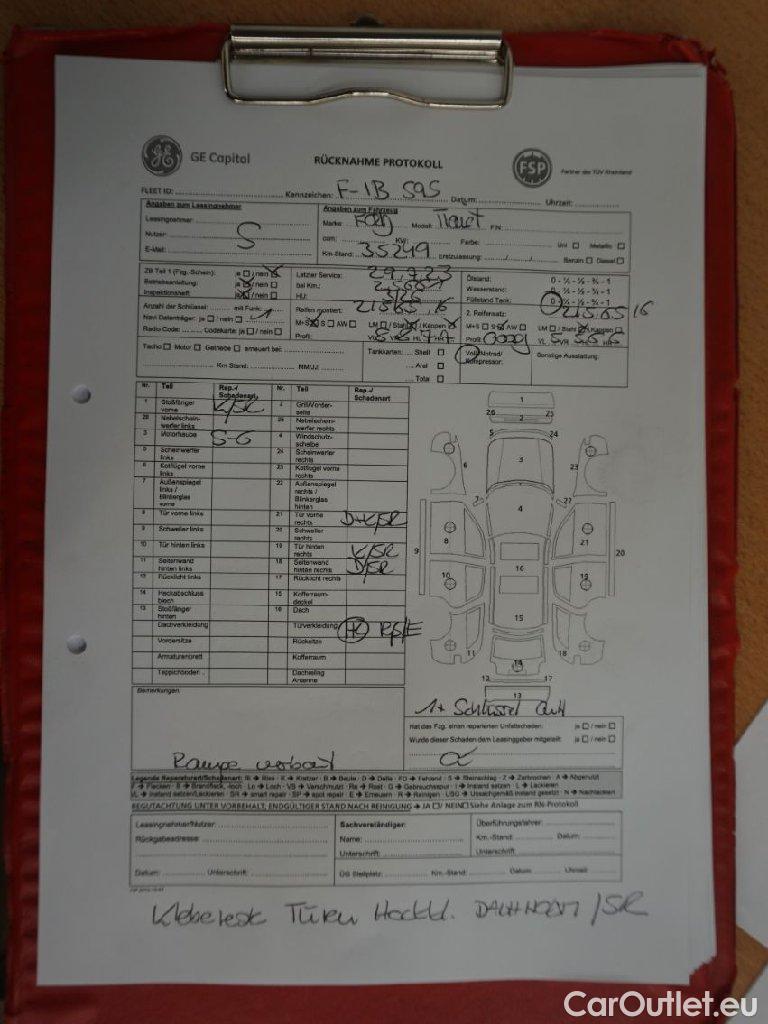 GE Capital
RÜCKNAHME PROTOKOLL
FSP
Partner der TÜV Rheinland
FLEET ID: Kennzeichen: F-IB 595 Datum: Uhrzeit:
Angaben zum Leasingnehmer
Angaben zum Fahrzeug
Leasingnehmer:
Marke: Ford Modell: Transit FIN:
Nutzer: S
ccm: KW: Farbe: Uni □ Metallic □
E-Mail:
Km-Stand: 35249 Erstzulassung: Benzin □ Diesel □
ZB Teil 1 (Frzg.-Schein): ja □ / nein □
Letzter Service:
Ölstand: 0 - ¼ - ½ - ¾ - 1
Betriebsanleitung: ja □ / nein □
bei Km.:
Wasserstand: 0 - ¼ - ½ - ¾ - 1
Inspektionsheft: ja □ / nein □
HU:
Füllstand Tank: 0 - ¼ - ½ - ¾ - 1
Anzahl der Schlüssel: mit Funk: 1
Reifen montiert: 215 65 16
2. Reifensatz: 215 65 16
Navi Datenträger: ja □ / nein □
M+S □ S □ AW □ LM □ / Stahl □ / Kappen □
M+S □ S □ AW □ LM □ / Stahl □ / Kappen □
Radio Code: Codekarte: ja □ / nein □
Profil: VL VR HL HR
Profil VL VR HL HR
Tacho □ Motor □ Getriebe □ erneuert bei:
Tankkarten: Shell □
Voll / Notrad / Kompressor:
Sonstige Ausstattung:
Km Stand: MM/JJ
Aral □
Total □
Nr. Teil Rep.-/ Schadenart Nr. Teil Rep.-/ Schadenart
1 Stoßfänger vorne K/SR 2 Grill/Vorderseite
26 Nebelscheinwerfer links 25 Nebelscheinwerfer rechts
3 Motorhaube S-G 4 Windschutzscheibe
5 Scheinwerfer links 24 Scheinwerfer rechts
6 Kotflügel vorne links 23 Kotflügel vorne rechts
7 Außenspiegel links / Blinkerglas vorne 22 Außenspiegel rechts / Blinkerglas hinten
8 Tür vorne links 21 Tür vorne rechts D+K/SR
9 Schweller links 20 Schweller rechts
10 Tür hinten links 19 Tür hinten rechts K/SR
11 Seitenwand hinten links 18 Seitenwand hinten rechts D/SR
12 Rücklicht links 17 Rücklicht rechts
14 Heckabschlussblech 15 Kofferraumdeckel
13 Stoßfänger hinten 16 Dach
Dachverkleidung Türverkleidung
Vordersitze Rücksitze
Armaturenbrett Kofferraum
Teppichboden Dachreling Antenne
Bemerkungen:
Rampe verbaut
1x Schlüssel
Hat das Fzg. einen reparierten Unfallschaden: ja □ / nein □
Wurde dieser Schaden dem Leasinggeber mitgeteilt: ja □ / nein □
Legende Reparaturart/Schadenart: Ri → Riss - K → Kratzer - B → Beule - D → Delle - FD → Fehlend - S → Steinschlag - Z → Zerbrochen - A → Abgenutzt
F → Flecken - B → Brandfleck, -loch - Lo → Loch - VS → Verschmutzt - Ro → Rost - G → Gebrauchsspur - I → Instand setzen - L → Lackieren
I/L → Instand setzen/Lackieren - SR → smart repair - SP → spot repair - E → Erneuern - R → Reinigen - USG → Unsachgemäß instand gesetzt - N → Nachlackieren
BEGUTACHTUNG UNTER VORBEHALT; ENDGÜLTIGER STAND NACH REINIGUNG → JA □ / NEIN □ Siehe Anlage zum RN-Protokoll
Leasingnehmer/Nutzer:
Sachverständiger:
Überführungsfahrer:
Rückgabeadresse:
Name:
Km.-Stand: Datum:
Unterschrift:
Unterschrift:
Datum: Unterschrift:
ÜG Stellplatz: Km.-Stand: Datum: Uhrzeit:
Klebereste Türen Heckkl. /SR
CarOutlet.eu